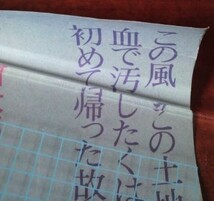 この風をこの土地
血で汚したくは
初めて帰った故